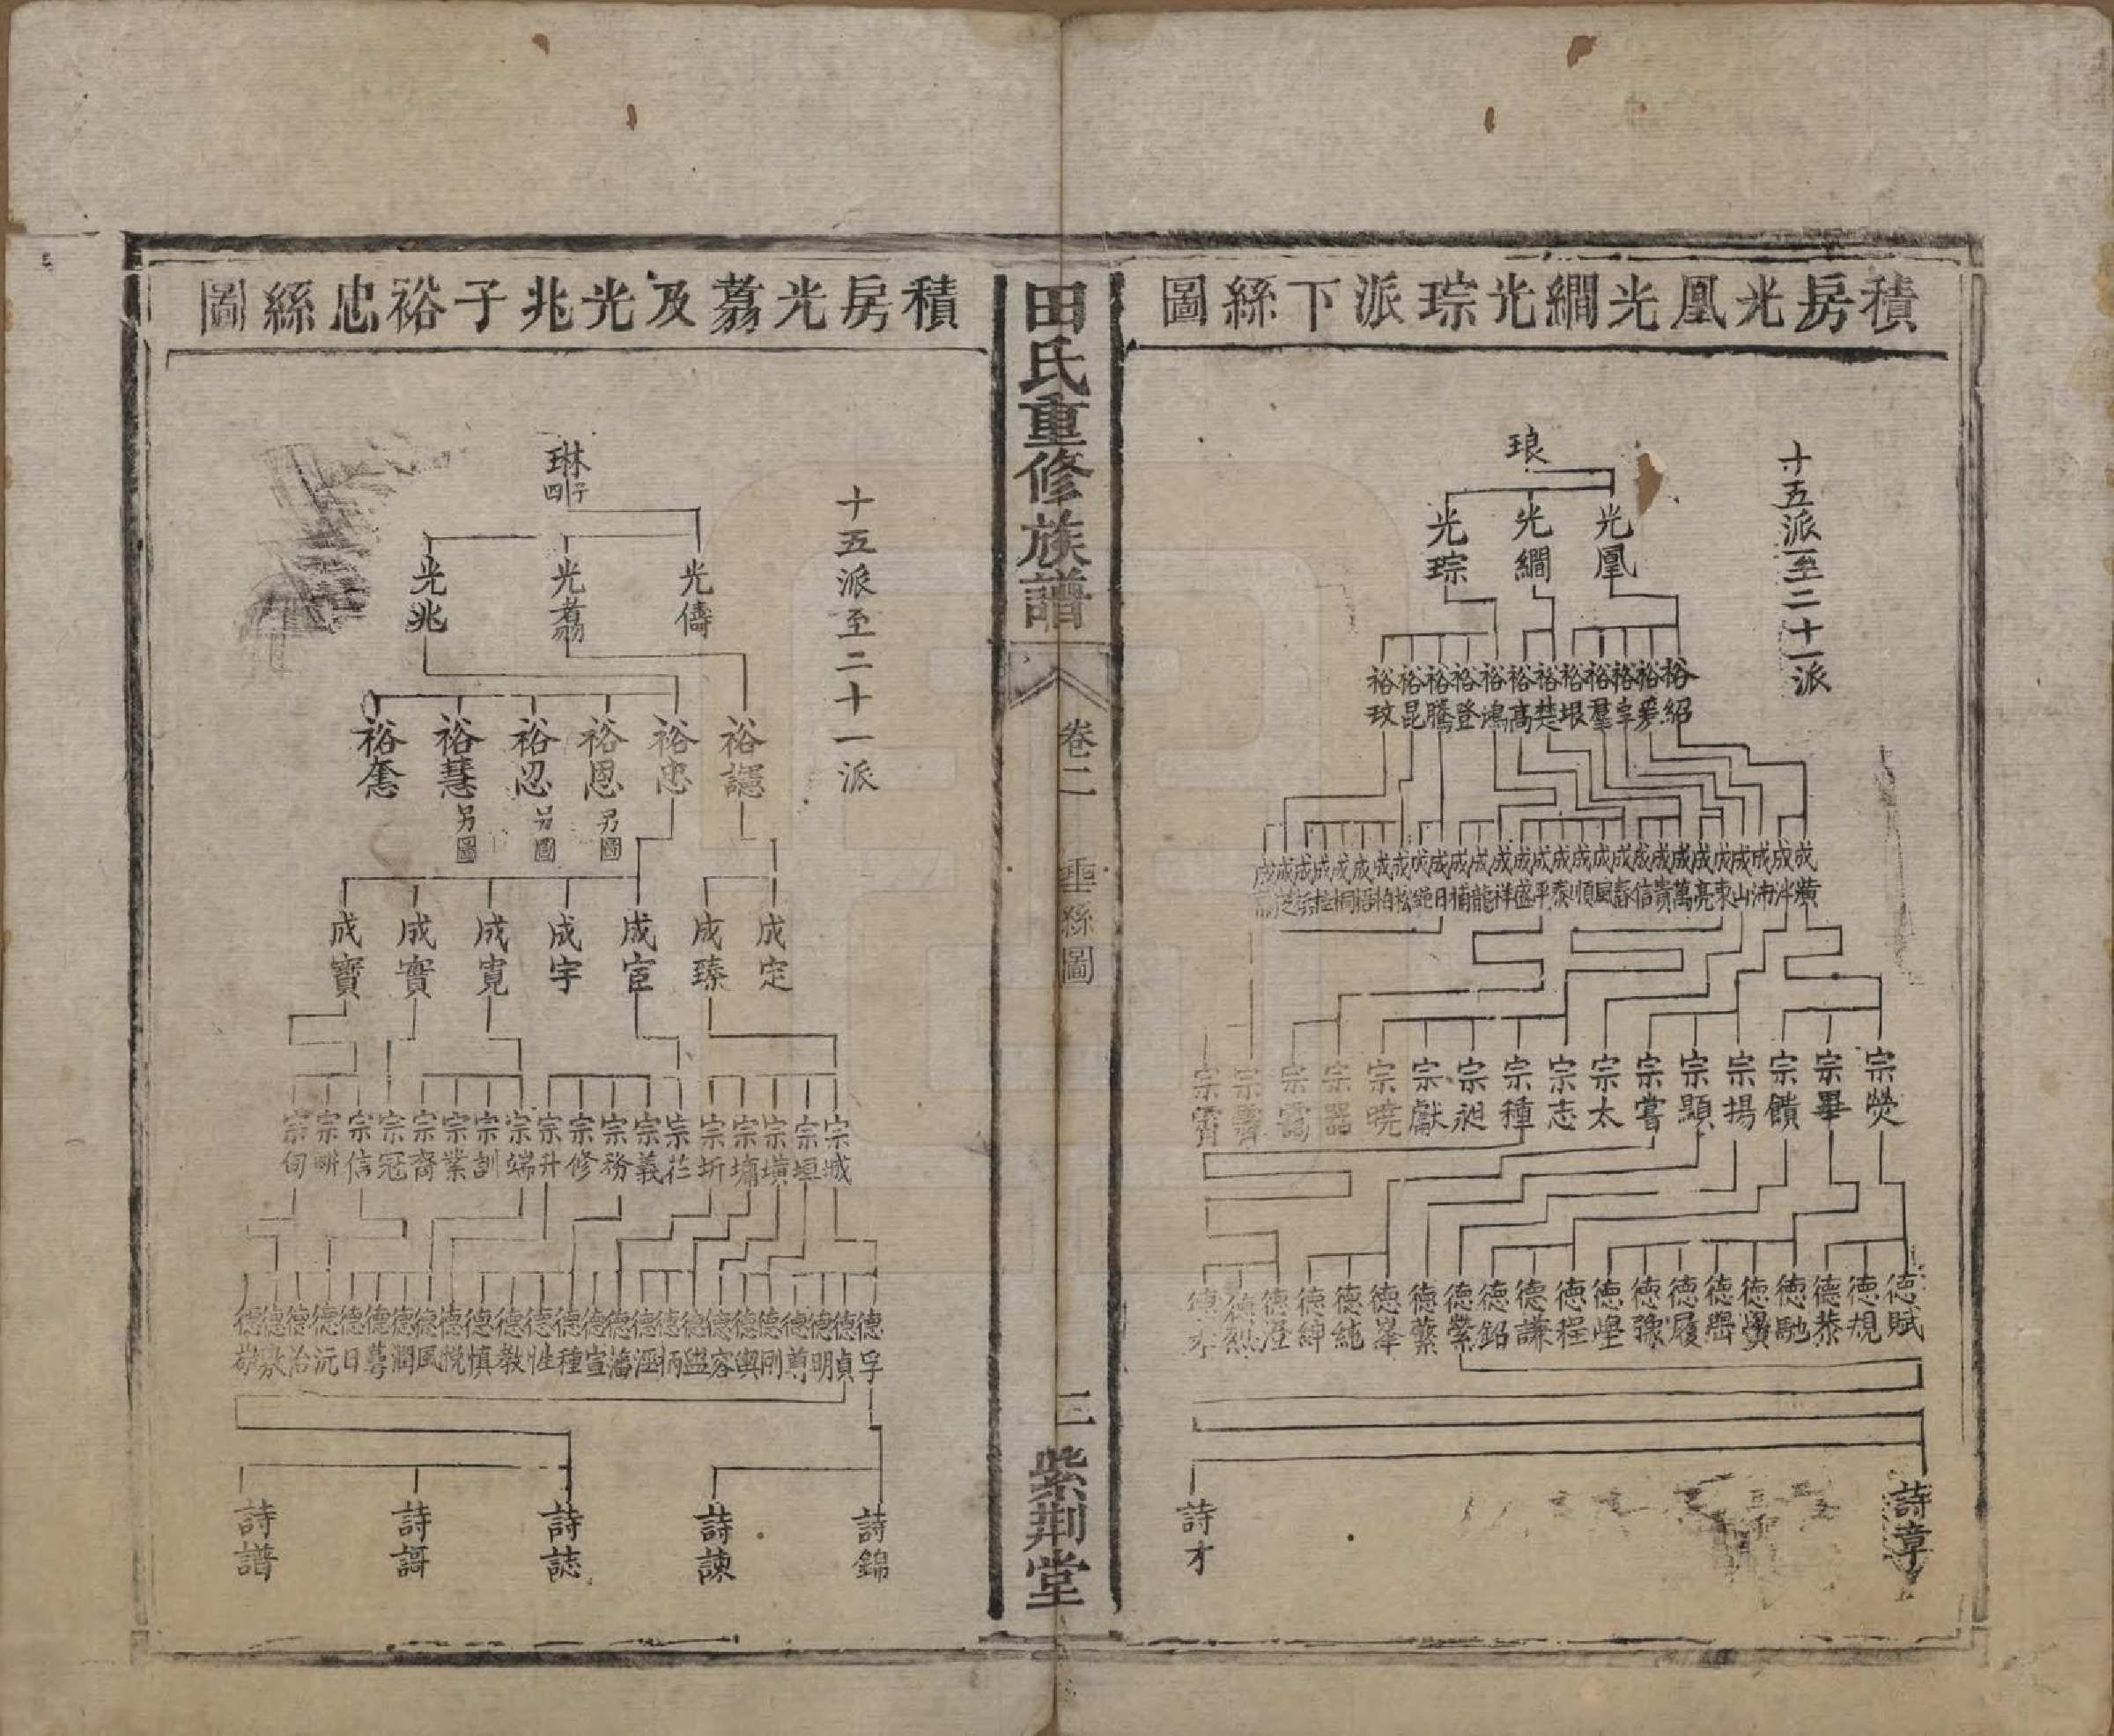 積房光凰光繝光琮派下緜圖
十五派至二十一派
琅
光凰 光繝 光琮
裕紹 裕爰 裕宰 裕羣 裕垠 裕楚 裕高 裕鴻 裕登 裕騰 裕昆 裕玟
成㶇 成泮 成沛 成山 成東 成亮 成萬 成貴 成信 成春 成風 成順 成泰 成平 成盛 成祥 成龍 成楠 成日 成松 成柏 成梧 成桐 成桂 成芝
宗熒 宗畢 宗饋 宗揚 宗顯 宗嘗 宗太 宗志 宗種 宗昶 宗獻 宗曉 宗器 宗靄 宗霽 宗霄
德賦 德規 德恭 德馳 德履 德程 德謙 德銘 德縈 德蘩 德峯 德純 德紳 德澄
詩章 詩才
田氏重修族譜
卷二 垂緜圖
三 紫荆堂
積房光蒭及光兆子裕忠緜圖
十五派至二十一派
琳四子
光儔 光蒭 光兆
裕謳 裕忠 裕恩另圖 裕忍另圖 裕慧另圖 裕
成定 成臻 成宦 成宇 成寬 成實 成寶
宗城 宗垣 宗壙 宗墉 宗圻 宗芢 宗義 宗務 宗修 宗升 宗端 宗訓 宗業 宗裔 宗冠 宗信 宗畊 宗甸
德孚 德貞 德明 德尊 德剛 德輿 德容 德盥 德柄 德涇 德藩 德宣 德種 德性 德教 德慎 德悅 德風 德潤 德蕚 德日 德沅 德治 德敦 德敬
詩錦 詩諫 詩誌 詩謌 詩譜